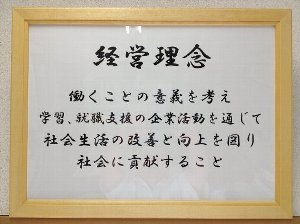 経営理念
働くことの意義を考え
学習、就職支援の企業活動を通じて
社会生活の改善と向上を図り
社会に貢献すること